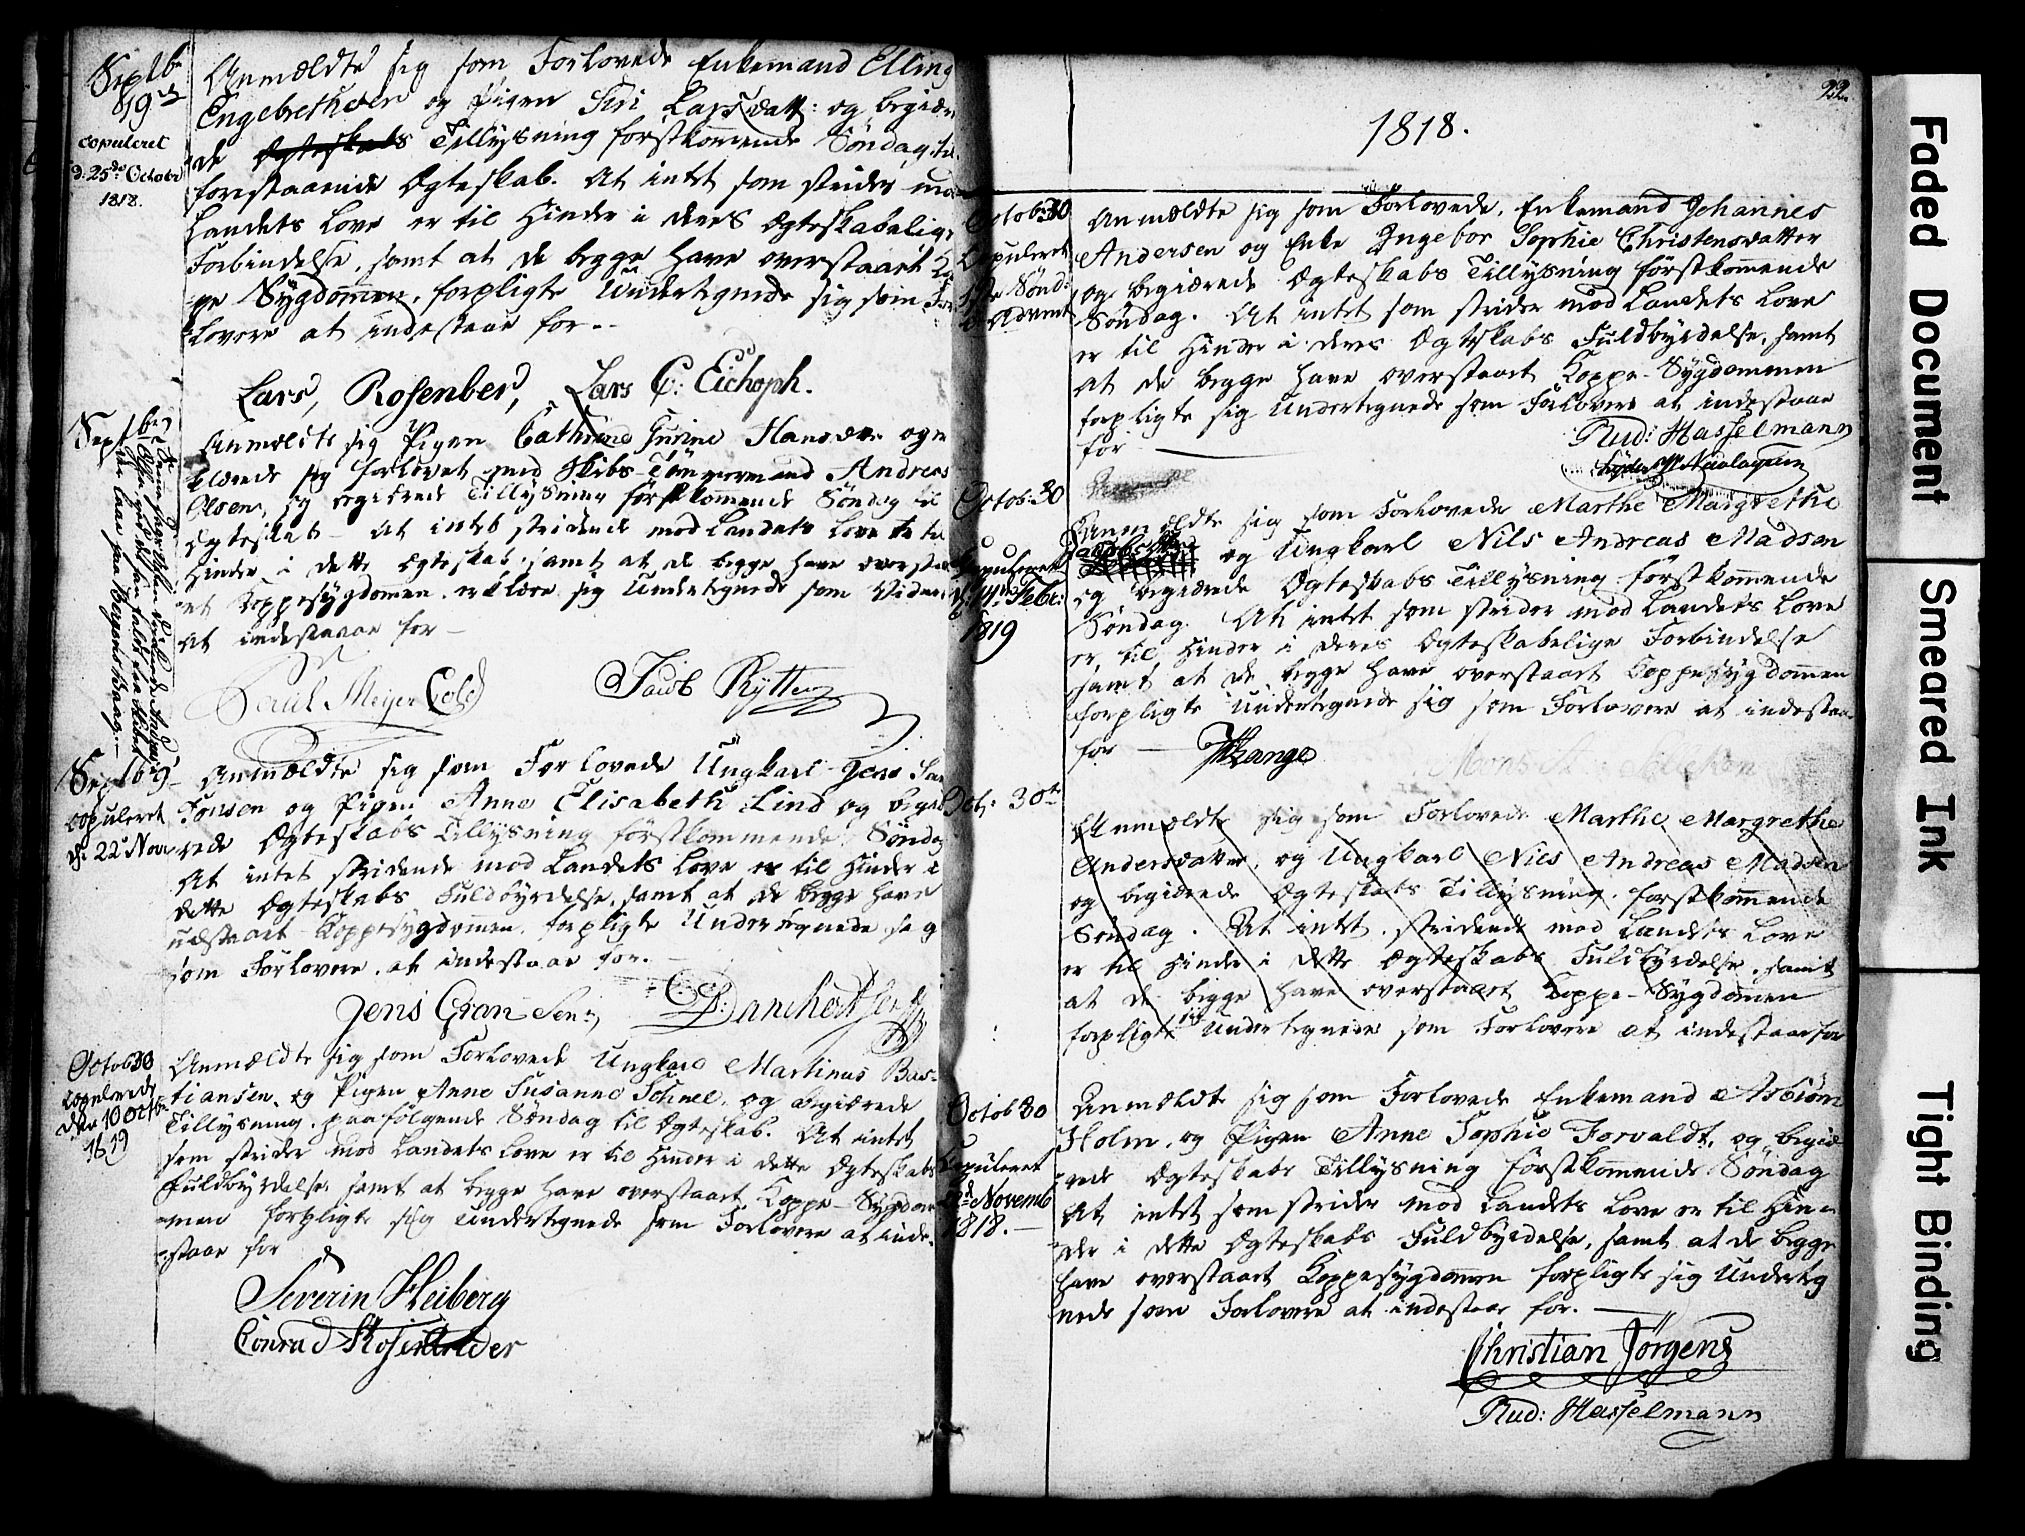 Septb
819
copuleret
d. 25de October
1818.
Anmeldte sig som Forlovede Enkemand Elling
Engebrethsen og Pigen Siri Larsdatt: og begiæ
de Ægteskabs Tillysning førstkommende Søndag til
forestaaende Ægteskab. At intet som strider mod
Landets Love er til Hinder i deres Ægteskabelige
Forbindelse, samt at de begge have overstaaet Ko
pe Sygdommen, forpligte Undertegnede sig som For
lovere at indestaae for.
Lars Rosenber, Lars C: Eichoph.
Septbr
Anmeldte sig Pigen Cathrine Hansdatr og
sig forlovet med Skibs-Tømmermand Andreas
Olsen, og begiærede Tillysning førstkommende Søndag til
Ægteskab - At intet stridende mod Landets Love er til
Hinder i dette Ægteskab, samt at de begge have overstaa
et Koppesygdommen, erklære sig Undertegnede som Vidne
at indestaae for -
Meyer Jacob Rytter
Septb 9
copuleret
d. 22 Nov
Anmeldte sig som Forlovede Ungkarl Jens
Tønsen og Pigen Anne Elisabeth Lind og begiæ
rede Ægteskabs Tillysning førstkommende Søndag
At intet stridende mod Landets Love er til Hinder i
dette Ægteskabs Fuldbyrdelse, samt at de begge have
udstaaet Koppesygdommen, forpligte Undertegnede sig
som Forlovere at indestaae for.
Jens Gran Sen:
Octob 30
copulerede
den 10 Octbr
1819
Anmeldte sig som Forlovede Ungkarl Martinus Bas-
tiansen, og Pigen Anne Susanne Sohnel, og begiærede
Tillysning paafølgende Søndag til Ægteskab. At intet
som strider mod Landets Love er til Hinder i dette Ægteskabs
Fuldbyrdelse, samt at begge have overstaaet Koppe-Sygdom
men forpligte sig Undertegnede som Forlovere at inde-
staae for
Severin Heiberg
Conrad
22.
1818.
Octob: 30
Copuleret
Sønd:
Advent
Anmeldte sig som Forlovede, Enkemand Johannes
Andersen og Enke Ingebor Sophie Christensdatter
og begiærede Ægteskabs Tillysning førstkommende
Søndag. At intet som strider mod Landets Love
er til Hinder i deres Ægteskabs Fuldbyrdelse, samt
at de begge have overstaaet Koppe-Sygdommen
forpligte sig Undertegnede som Forlovere at indestaae
for
Rud: Hasselmann
Octob: 30
Copuleret
d: 14 Febr:
1819
Anmeldte sig som Forlovede Marthe Margrethe
og Ungkarl Nils Andreas Madsen
og begiærede Ægteskabs Tillysning førstkommende
Søndag. At intet som strider mod Landets Love
er til Hinder i deres Ægteskabelige Forbindelse
samt at de begge have overstaaet Koppesygdommen
forpligte Undertegnede sig som Forlovere at indestaae
for
Octb: 30te
Anmeldte sig som Forlovede Marthe Margrethe
Andersdatter, og Ungkarl Nils Andreas Madsen
og begiærede Ægteskabs Tillysning førstkommende
Søndag. At intet stridende mod Landets Love
er til Hinder i dette Ægteskabs Fuldbyrdelse, samt
at de begge have overstaaet Koppe-Sygdommen
forpligte sig Undertegnede som Forlovere at indestaae for
Octob 30
Copuleret
22d Novemb
1818.
Anmeldte sig som Forlovede Enkemand Asbiørn
Holm, og Pigen Anne Sophie Forvaldt, og begiæ
rede Ægteskabs Tillysning førstkommende Søndag
At intet som strider mod Landets Love er til Hin-
der i dette Ægteskabs Fuldbyrdelse, samt at de begge
have overstaaet Koppesygdommen forpligte sig Underteg
nede som Forlovere at indestaae for.
Christian Jörgens
Rud: Hasselmann
Faded Document
Smeared Ink
Tight Binding